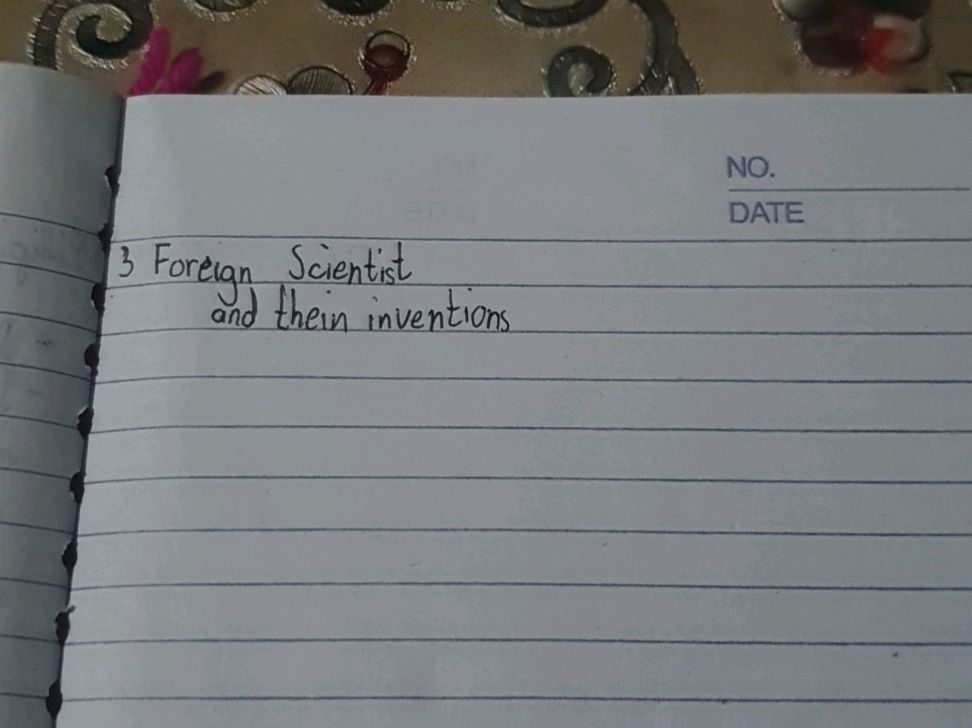 NO.
DATE
3 Foreign Scientist
and thein inventions